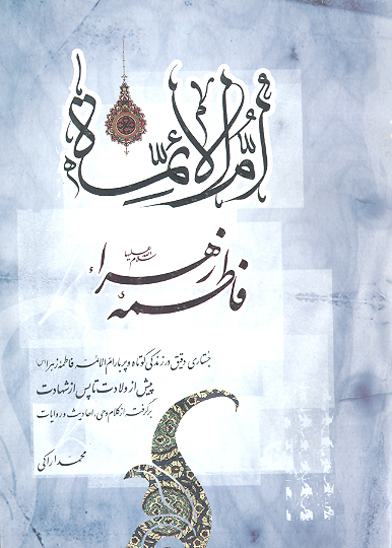 أُمُّ الأئمّة
فاطمهٔ زهراء
سلام الله علیها
جستاری دقیق در زندگی کوتاه و پربار ام الائمه فاطمهٔ زهرا(س)
پیش از ولادت تا پس از شهادت
برگرفته از کلام وحی، احادیث و روایات
محمد اراکی